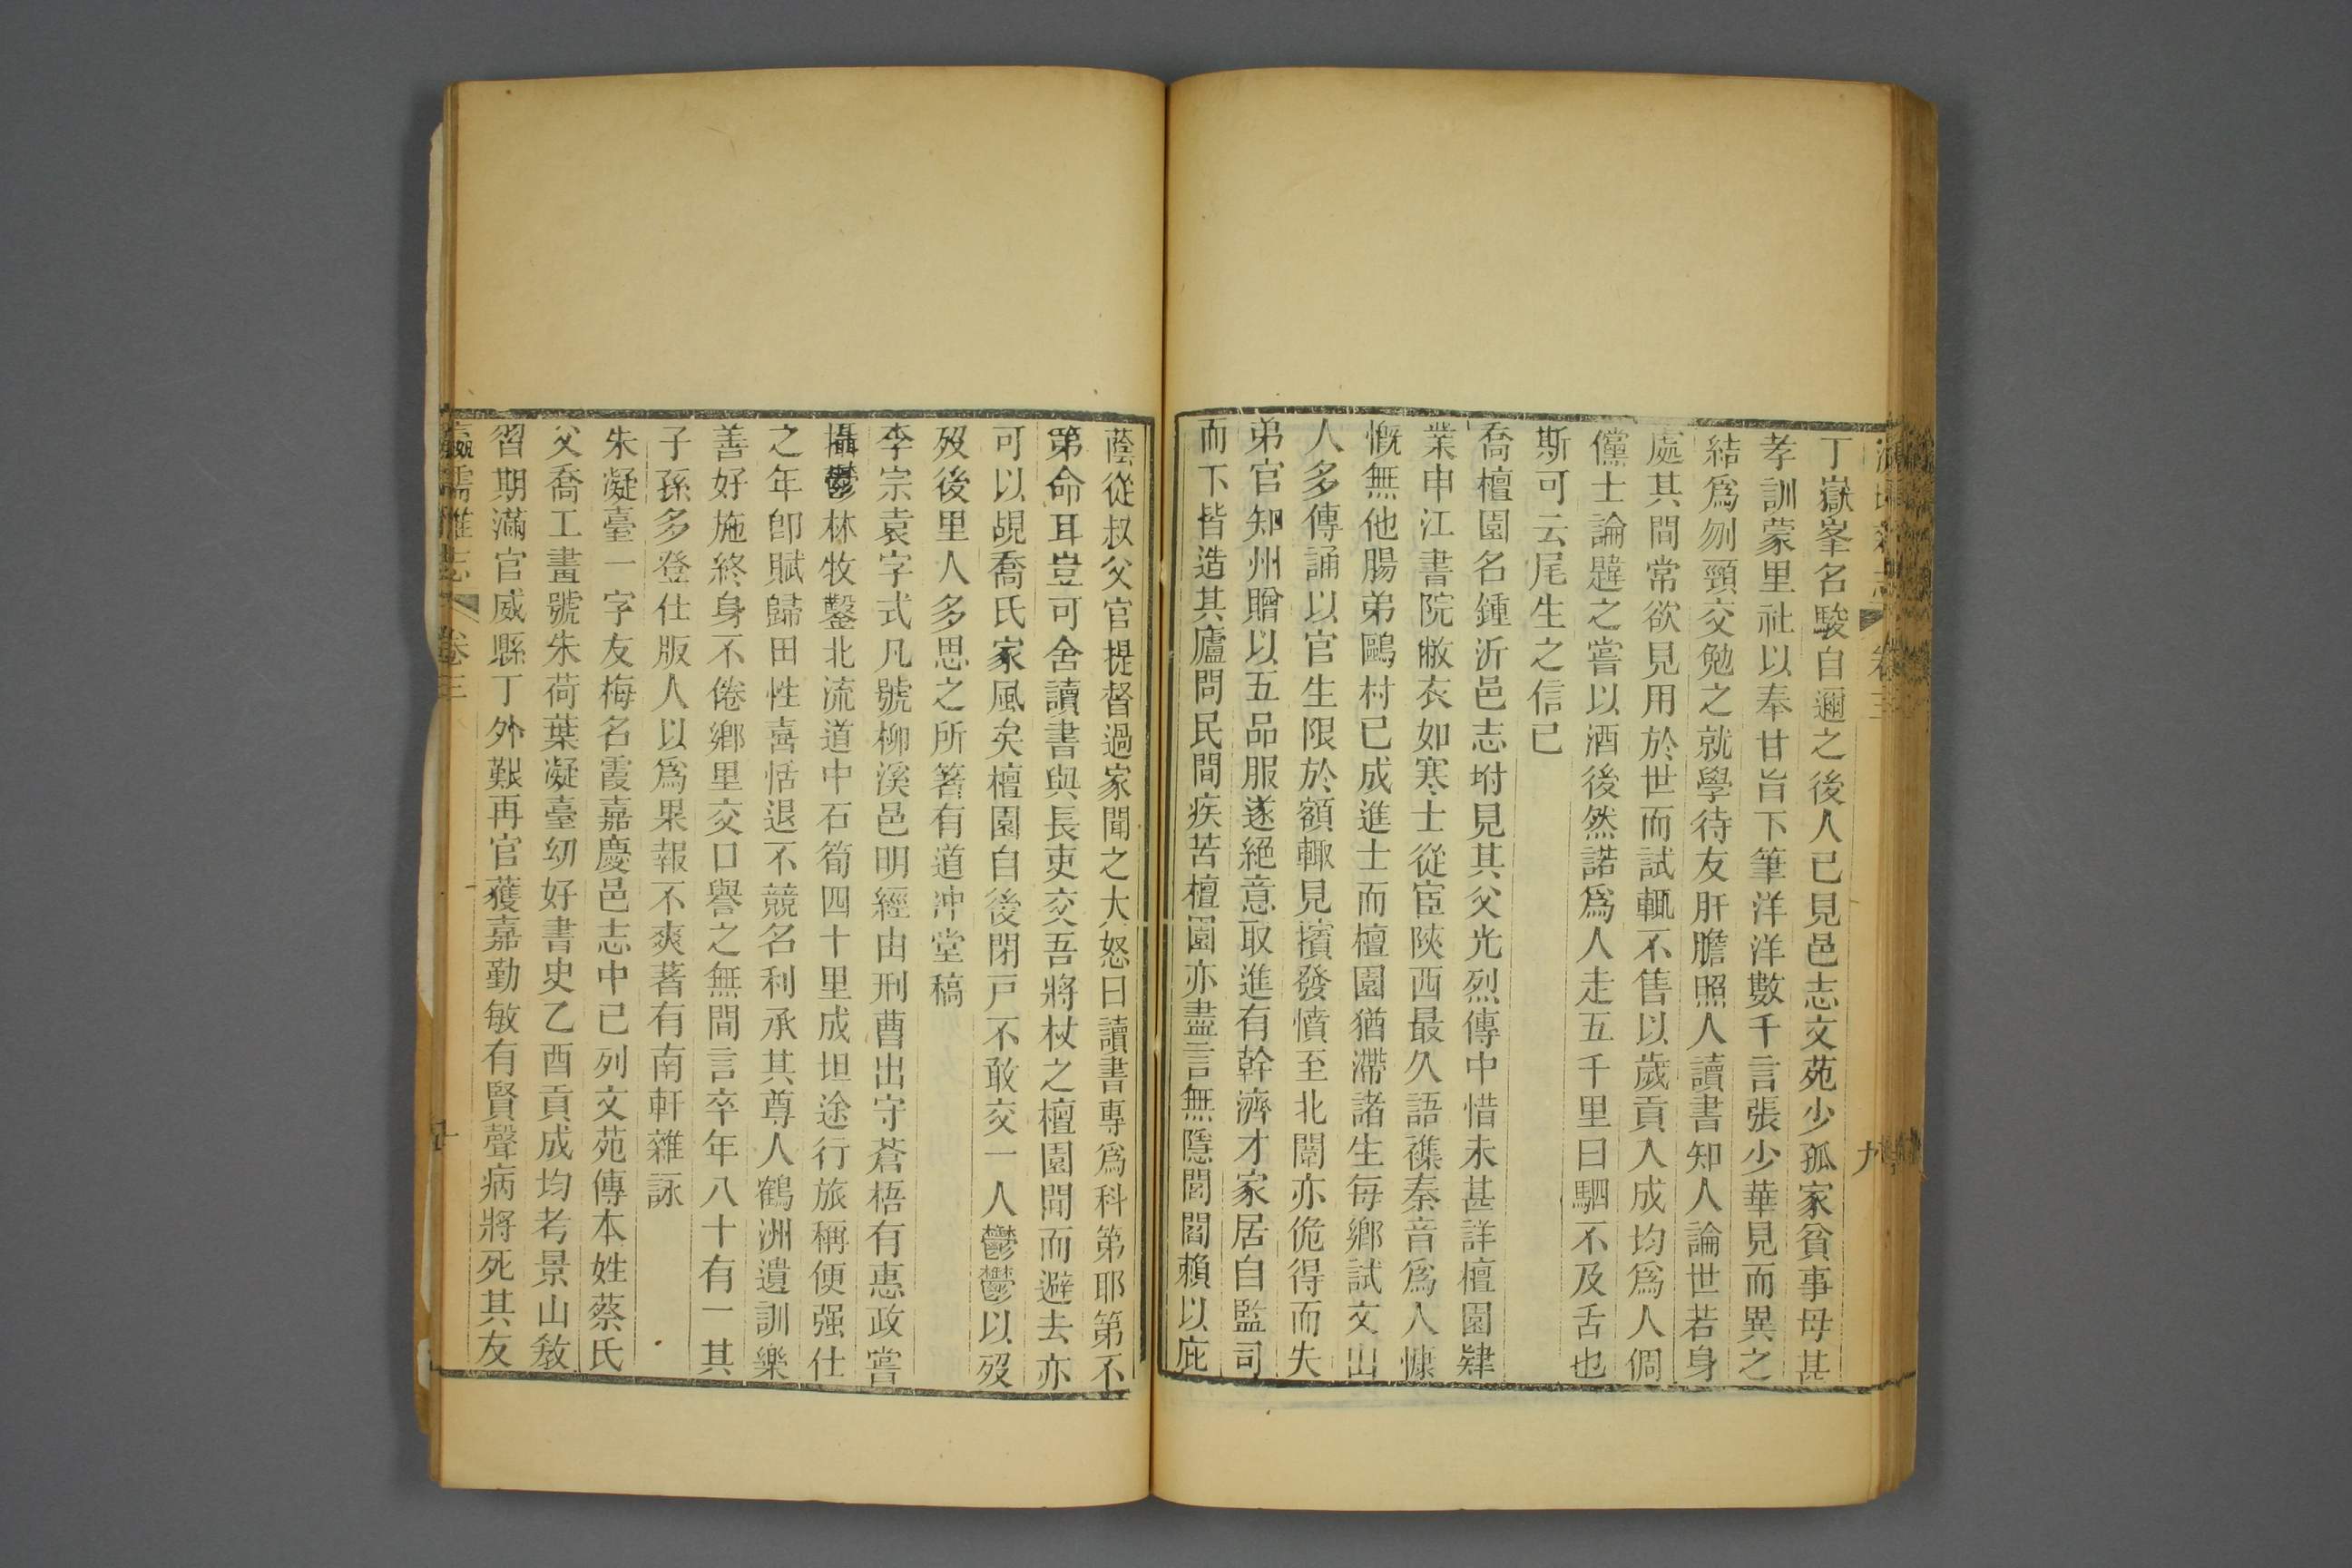 卷三
九
丁嶽峯名駿白邇之後人已見邑志文苑少孤家貧事母甚
孝訓蒙里社以奉甘旨下筆洋洋數千言張少華見而異之
結爲刎頸交勉之就學待友肝膽照人讀書知人論世若身
處其間常欲見用於世而試輒不售以歲貢入成均爲人倜
儻士論韙之嘗以酒後然諾爲人走五千里曰駟不及舌也
斯可云尾生之信已
喬檀園名鍾沂邑志坿見其父光烈傳中惜未甚詳檀園肄
業申江書院敝衣如寒士從宦陝西最久語襍秦音爲人慷
慨無他腸弟鷗村已成進士而檀園猶滯諸生每鄉試文出
人多傳誦以官生限於額輙見擯發憤至北闈亦佹得而失
弟官知州贈以五品服遂絕意取進有幹濟才家居自監司
而下皆造其廬問民間疾苦檀園亦盡言無隱閭閻賴以庇
蔭從叔父官提督過家聞之大怒曰讀書專爲科第耶第不
第命耳豈可舍讀書與長吏交吾將杖之檀園聞而避去亦
可以覘喬氏家風矣檀園自後閉戸不敢交一人鬱鬱以歿
歿後里人多思之所箸有道冲堂稿
李宗袁字式凡號柳溪邑明經由刑曹出守蒼梧有惠政嘗
攝鬱林牧鑿北流道中石筍四十里成坦途行旅稱便强仕
之年卽賦歸田性喜恬退不競名利承其尊人鶴洲遺訓樂
善好施終身不倦鄉里交口譽之無間言卒年八十有一其
子孫多登仕版人以爲果報不爽著有南軒雜詠
朱凝臺一字友梅名霞嘉慶邑志中已列文苑傳本姓蔡氏
父喬工畫號朱荷葉凝臺幼好書史乙酉貢成均考景山敎
習期滿官威縣丁外艱再官獲嘉勤敏有賢聲病將死其友
瀛壖雜志
卷三
十